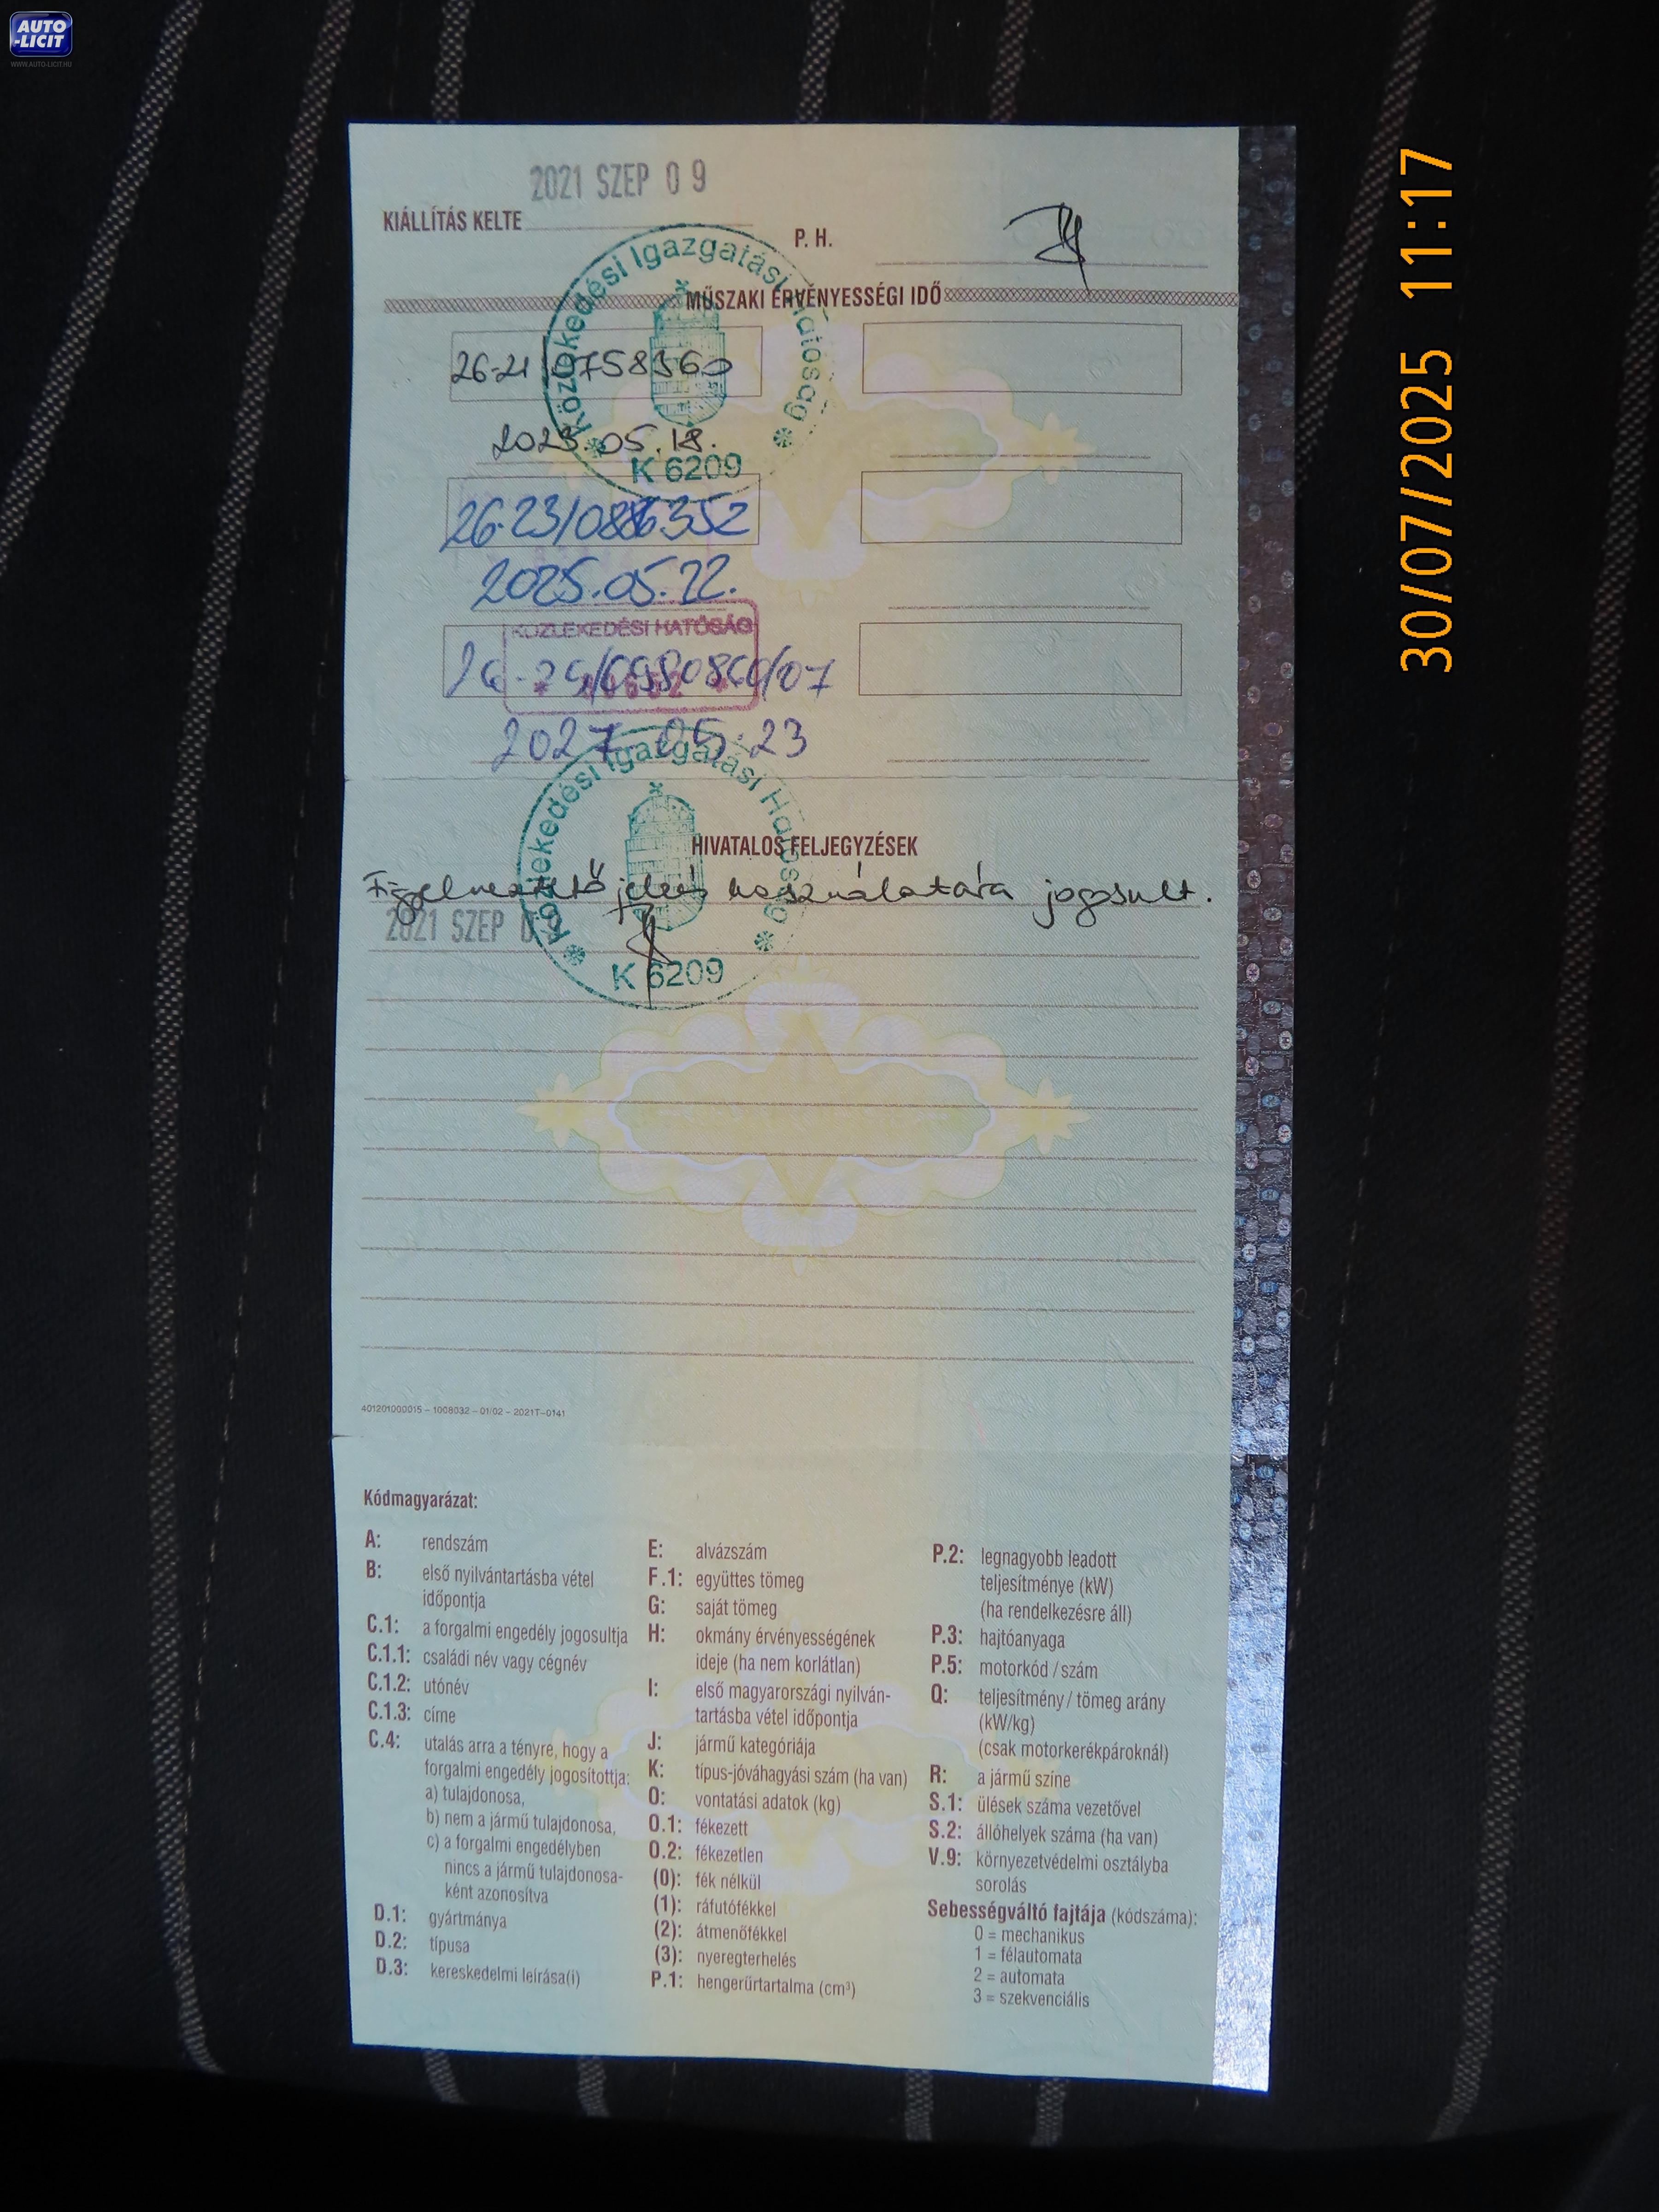 AUTO
-LICIT
WWW.AUTO-LICIT.HU
30/07/2025 11:17
2021 SZEP 09
KIÁLLÍTÁS KELTE
P. H.
Közlekedési Igazgatási Hatóság
K 6209
MŰSZAKI ÉRVÉNYESSÉGI IDŐ
26-21/0758360
2023.05.18.
26-23/
2025.05.22.
KÖZLEKEDÉSI HATÓSÁG
2027.05.23
Közlekedési Igazgatási Hatóság
K 6209
HIVATALOS FELJEGYZÉSEK
Figyelmeztető jelzés használatára jogosult.
2021 SZEP 0
401201000015 – 1008032 – 01/02 – 2021T–0141
Kódmagyarázat:
A: rendszám
B: első nyilvántartásba vétel
időpontja
C.1: a forgalmi engedély jogosultja
C.1.1: családi név vagy cégnév
C.1.2: utónév
C.1.3: címe
C.4: utalás arra a tényre, hogy a
forgalmi engedély jogosítottja:
a) tulajdonosa,
b) nem a jármű tulajdonosa,
c) a forgalmi engedélyben
nincs a jármű tulajdonosa-
ként azonosítva
D.1: gyártmánya
D.2: típusa
D.3: kereskedelmi leírása(i)
E: alvázszám
F.1: együttes tömeg
G: saját tömeg
H: okmány érvényességének
ideje (ha nem korlátlan)
I: első magyarországi nyilván-
tartásba vétel időpontja
J: jármű kategóriája
K: típus-jóváhagyási szám (ha van)
O: vontatási adatok (kg)
O.1: fékezett
O.2: fékezetlen
(0): fék nélkül
(1): ráfutófékkel
(2): átmenőfékkel
(3): nyeregterhelés
P.1: hengerűrtartalma (cm³)
P.2: legnagyobb leadott
teljesítménye (kW)
(ha rendelkezésre áll)
P.3: hajtóanyaga
P.5: motorkód / szám
Q: teljesítmény / tömeg arány
(kW/kg)
(csak motorkerékpároknál)
R: a jármű színe
S.1: ülések száma vezetővel
S.2: állóhelyek száma (ha van)
V.9: környezetvédelmi osztályba
sorolás
Sebességváltó fajtája (kódszáma):
0 = mechanikus
1 = félautomata
2 = automata
3 = szekvenciális